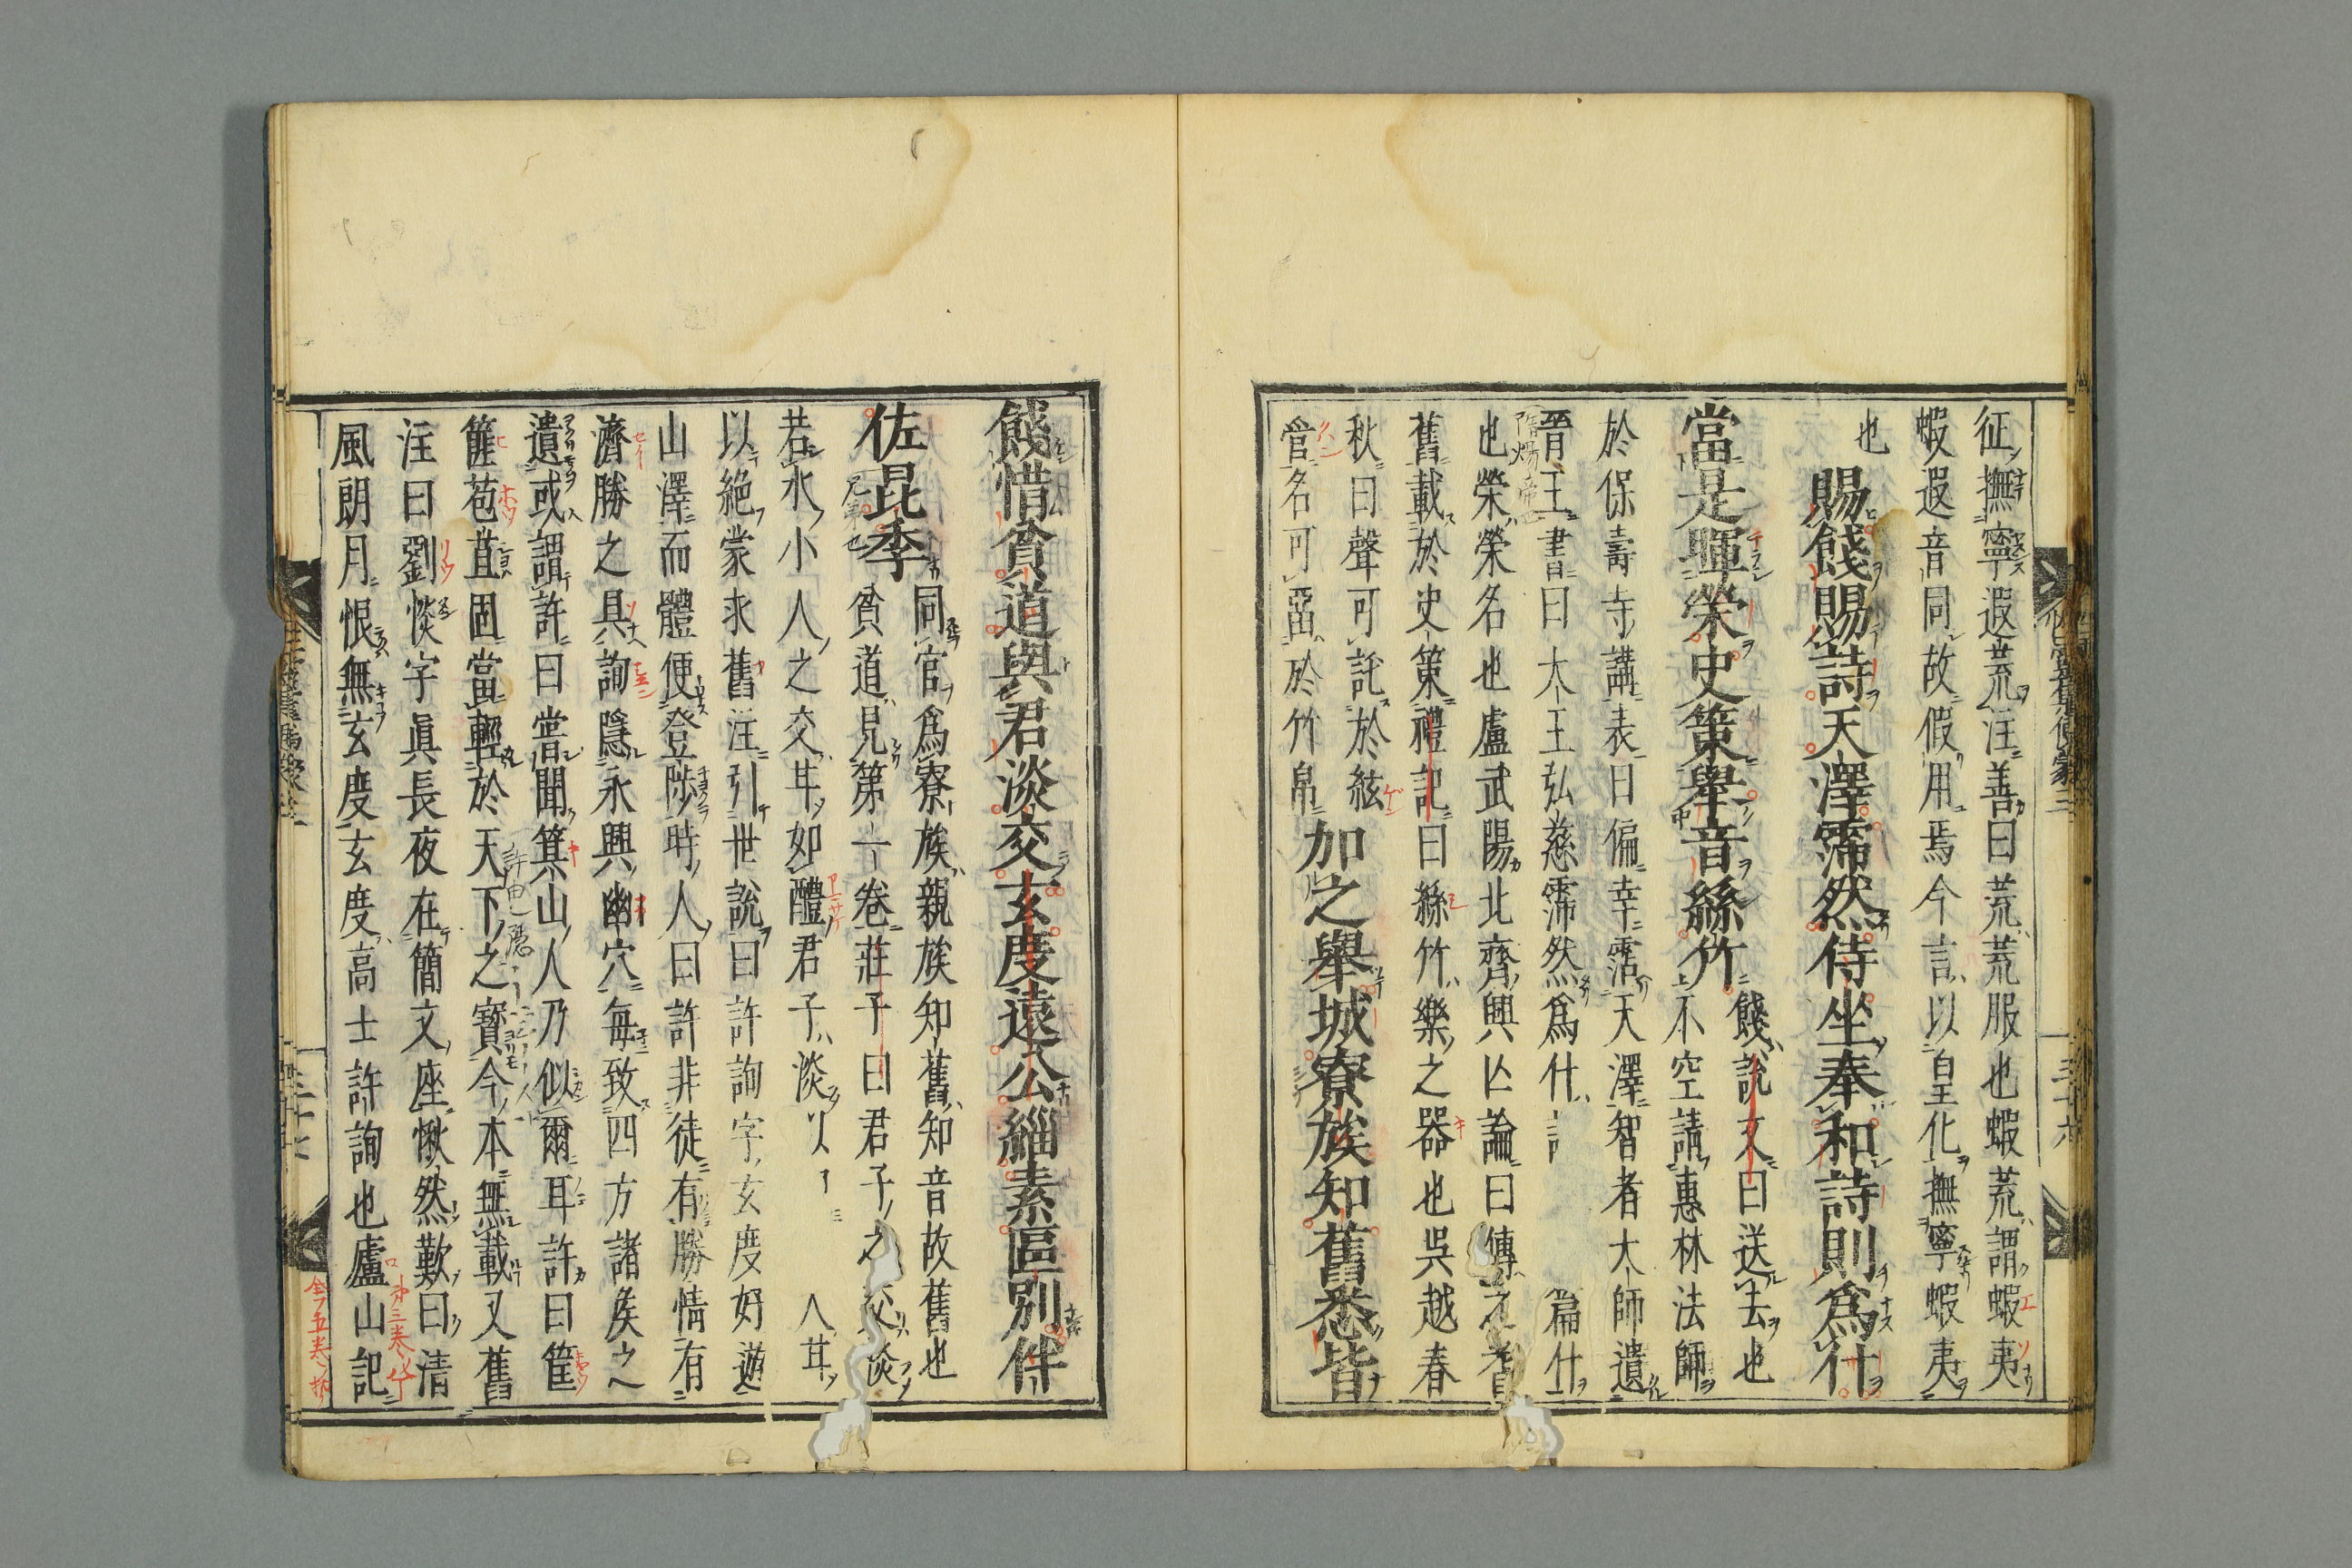 征撫寧遐荒注善曰荒荒服也蝦荒謂蝦夷
蝦遐音同故假用焉今言以皇化撫寧蝦夷
也
賜餞賜詩天澤霈然侍坐奉和詩則爲什
當是暉榮史策舉音絲竹
餞說文曰送去也
不空請惠林法師
於保壽寺講表曰偏幸霑天澤智者大師遺
晉王書曰大王弘慈霈然爲什
篇什
也榮榮名也盧武陽北齊興亡論曰傳之
舊載於史策禮記曰絲竹樂之器也吳越春
秋曰聲可託於絃
管名可留於竹帛
加之舉城寮族知舊悉皆
餞惜貧道與君淡交玄度遠公緇素區別伴
佐昆季
同官爲寮族親族知舊知音故舊也
貧道見第一卷莊子曰君子之交淡
若水小人之交甘如醴君子淡以
人甘
以絕蒙求舊注引世說曰許詢字玄度好遊
山澤而體便登陟時人曰許非徒有勝情有
濟勝之具詢隱永興幽穴每致四方諸侯之
遺或謂許曰嘗聞箕山人乃似爾耳許曰筐
篚苞苴固當輕於天下之寶今本無載又舊
注曰劉惔字眞長夜在簡文座愀然歎曰清
風朗月恨無玄度玄度高士許詢也廬山記